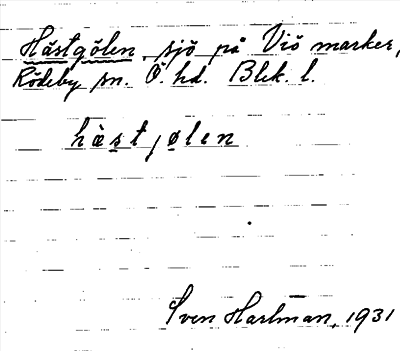 Hästgölen, sjö på Viö marker,
Rödeby sn. Ö. hd. Blek. l.
hästjølen
Sven Harlman, 1931